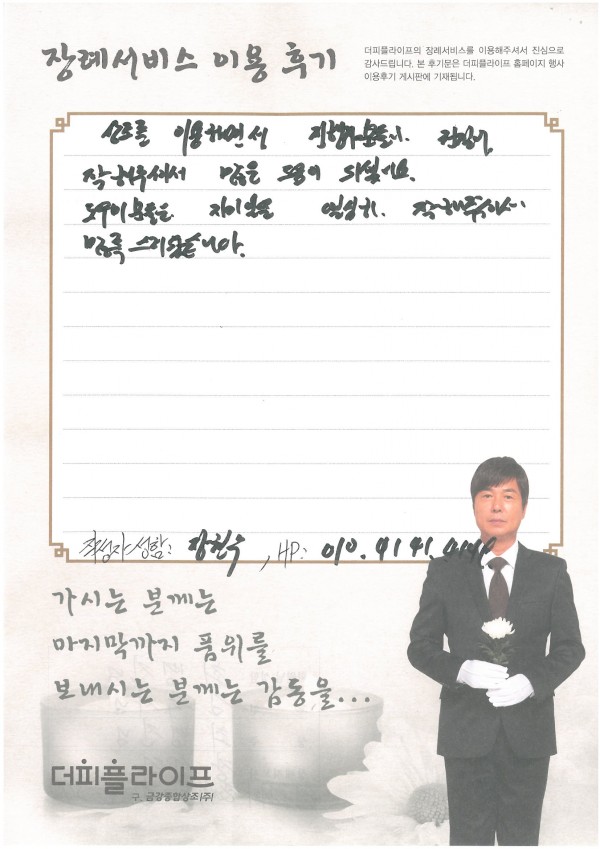 장례서비스 이용 후기
더피플라이프의 장례서비스를 이용해주셔서 진심으로
감사드립니다. 본 후기문은 더피플라이프 홈페이지 행사
이용후기 게시판에 기재됩니다.
상조를 이용하면서
잘 해주셔서 많은 도움이 되었네요.
도우미분들은 자기일처럼 열심히 잘 해주셔서
만족스러웠습니다.
작성자 성함: 장진우, HP: 010. 9141.
가시는 분께는
마지막까지 품위를
보내시는 분께는 감동을...
더피플라이프
구. 금강종합상조(주)